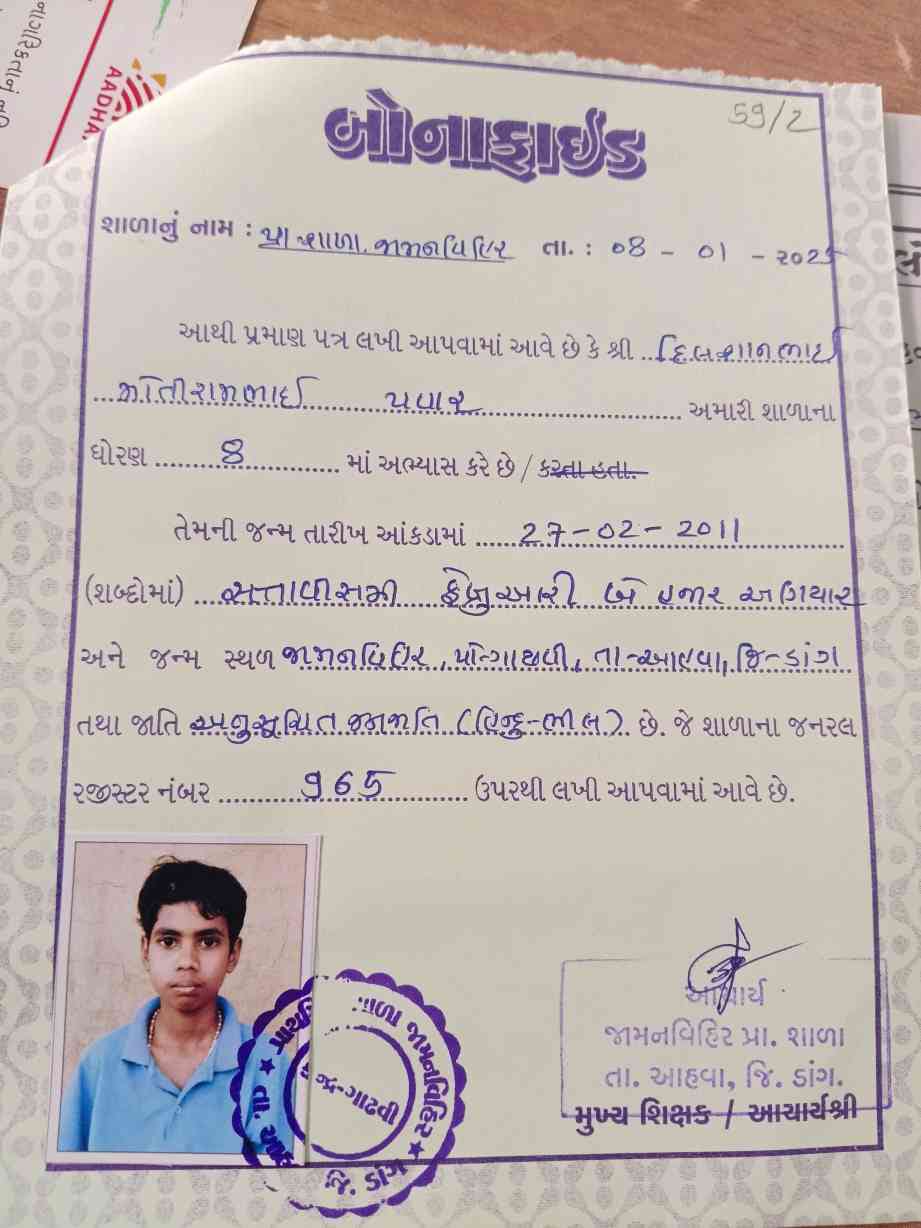 નાગરિકતાનું નહિ
AADHA
બોનાફાઈડ
59/2
શાળાનું નામ : પ્રા શાળા. જામનવિહિર તા. : ૦8 - ૦1 - ૨૦25
આથી પ્રમાણ પત્ર લખી આપવામાં આવે છે કે શ્રી દિલશાનભાઈ
મોતીરામભાઈ પવાર અમારી શાળાના
ધોરણ 8 માં અભ્યાસ કરે છે / કરતા હતા.
તેમની જન્મ તારીખ આંકડામાં 27-02-2011
(શબ્દોમાં) સત્તાવીસમી ફેબ્રુઆરી બે હજાર અગિયાર
અને જન્મ સ્થળ જામનવિહિર, તા-આહવા, જિ-ડાંગ
તથા જાતિ અનુસૂચિત જનજાતિ (હિન્દુ-ભીલ) છે. જે શાળાના જનરલ
રજીસ્ટર નંબર 965 ઉપરથી લખી આપવામાં આવે છે.
આચાર્ય
જામનવિહિર પ્રા. શાળા
તા. આહવા, જિ. ડાંગ.
મુખ્ય શિક્ષક / આચાર્યશ્રી
જામનવિહિર ★ જિ. ડાંગ ★ તા.